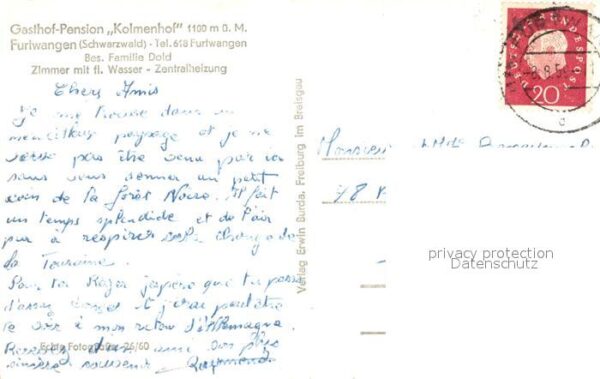 Gasthof-Pension „Kolmenhof" 1100 m ü. M.
Furtwangen (Schwarzwald) - Tel. 618 Furtwangen
Bes. Familie Dold
Zimmer mit fl. Wasser - Zentralheizung
Chers Amis
je me trouve dans un
merveilleux paysage et je ne
pas être venu par ici
sans vous donner un petit
coin de la forêt Noire. Il fait
un temps splendide et de l'air
pur à respirer change de
la Touraine.
Pour toi Roger j'espère que tu
et j'irai peut être
te voir à mon retour d'Allemagne
Recevez ami
sincère souvenir Raymond
Echte Fotografie 26/60
Verlag Erwin Burda, Freiburg im Breisgau
DEUTSCHE BUNDESPOST
20
Monsieur
78
privacy protection
Datenschutz